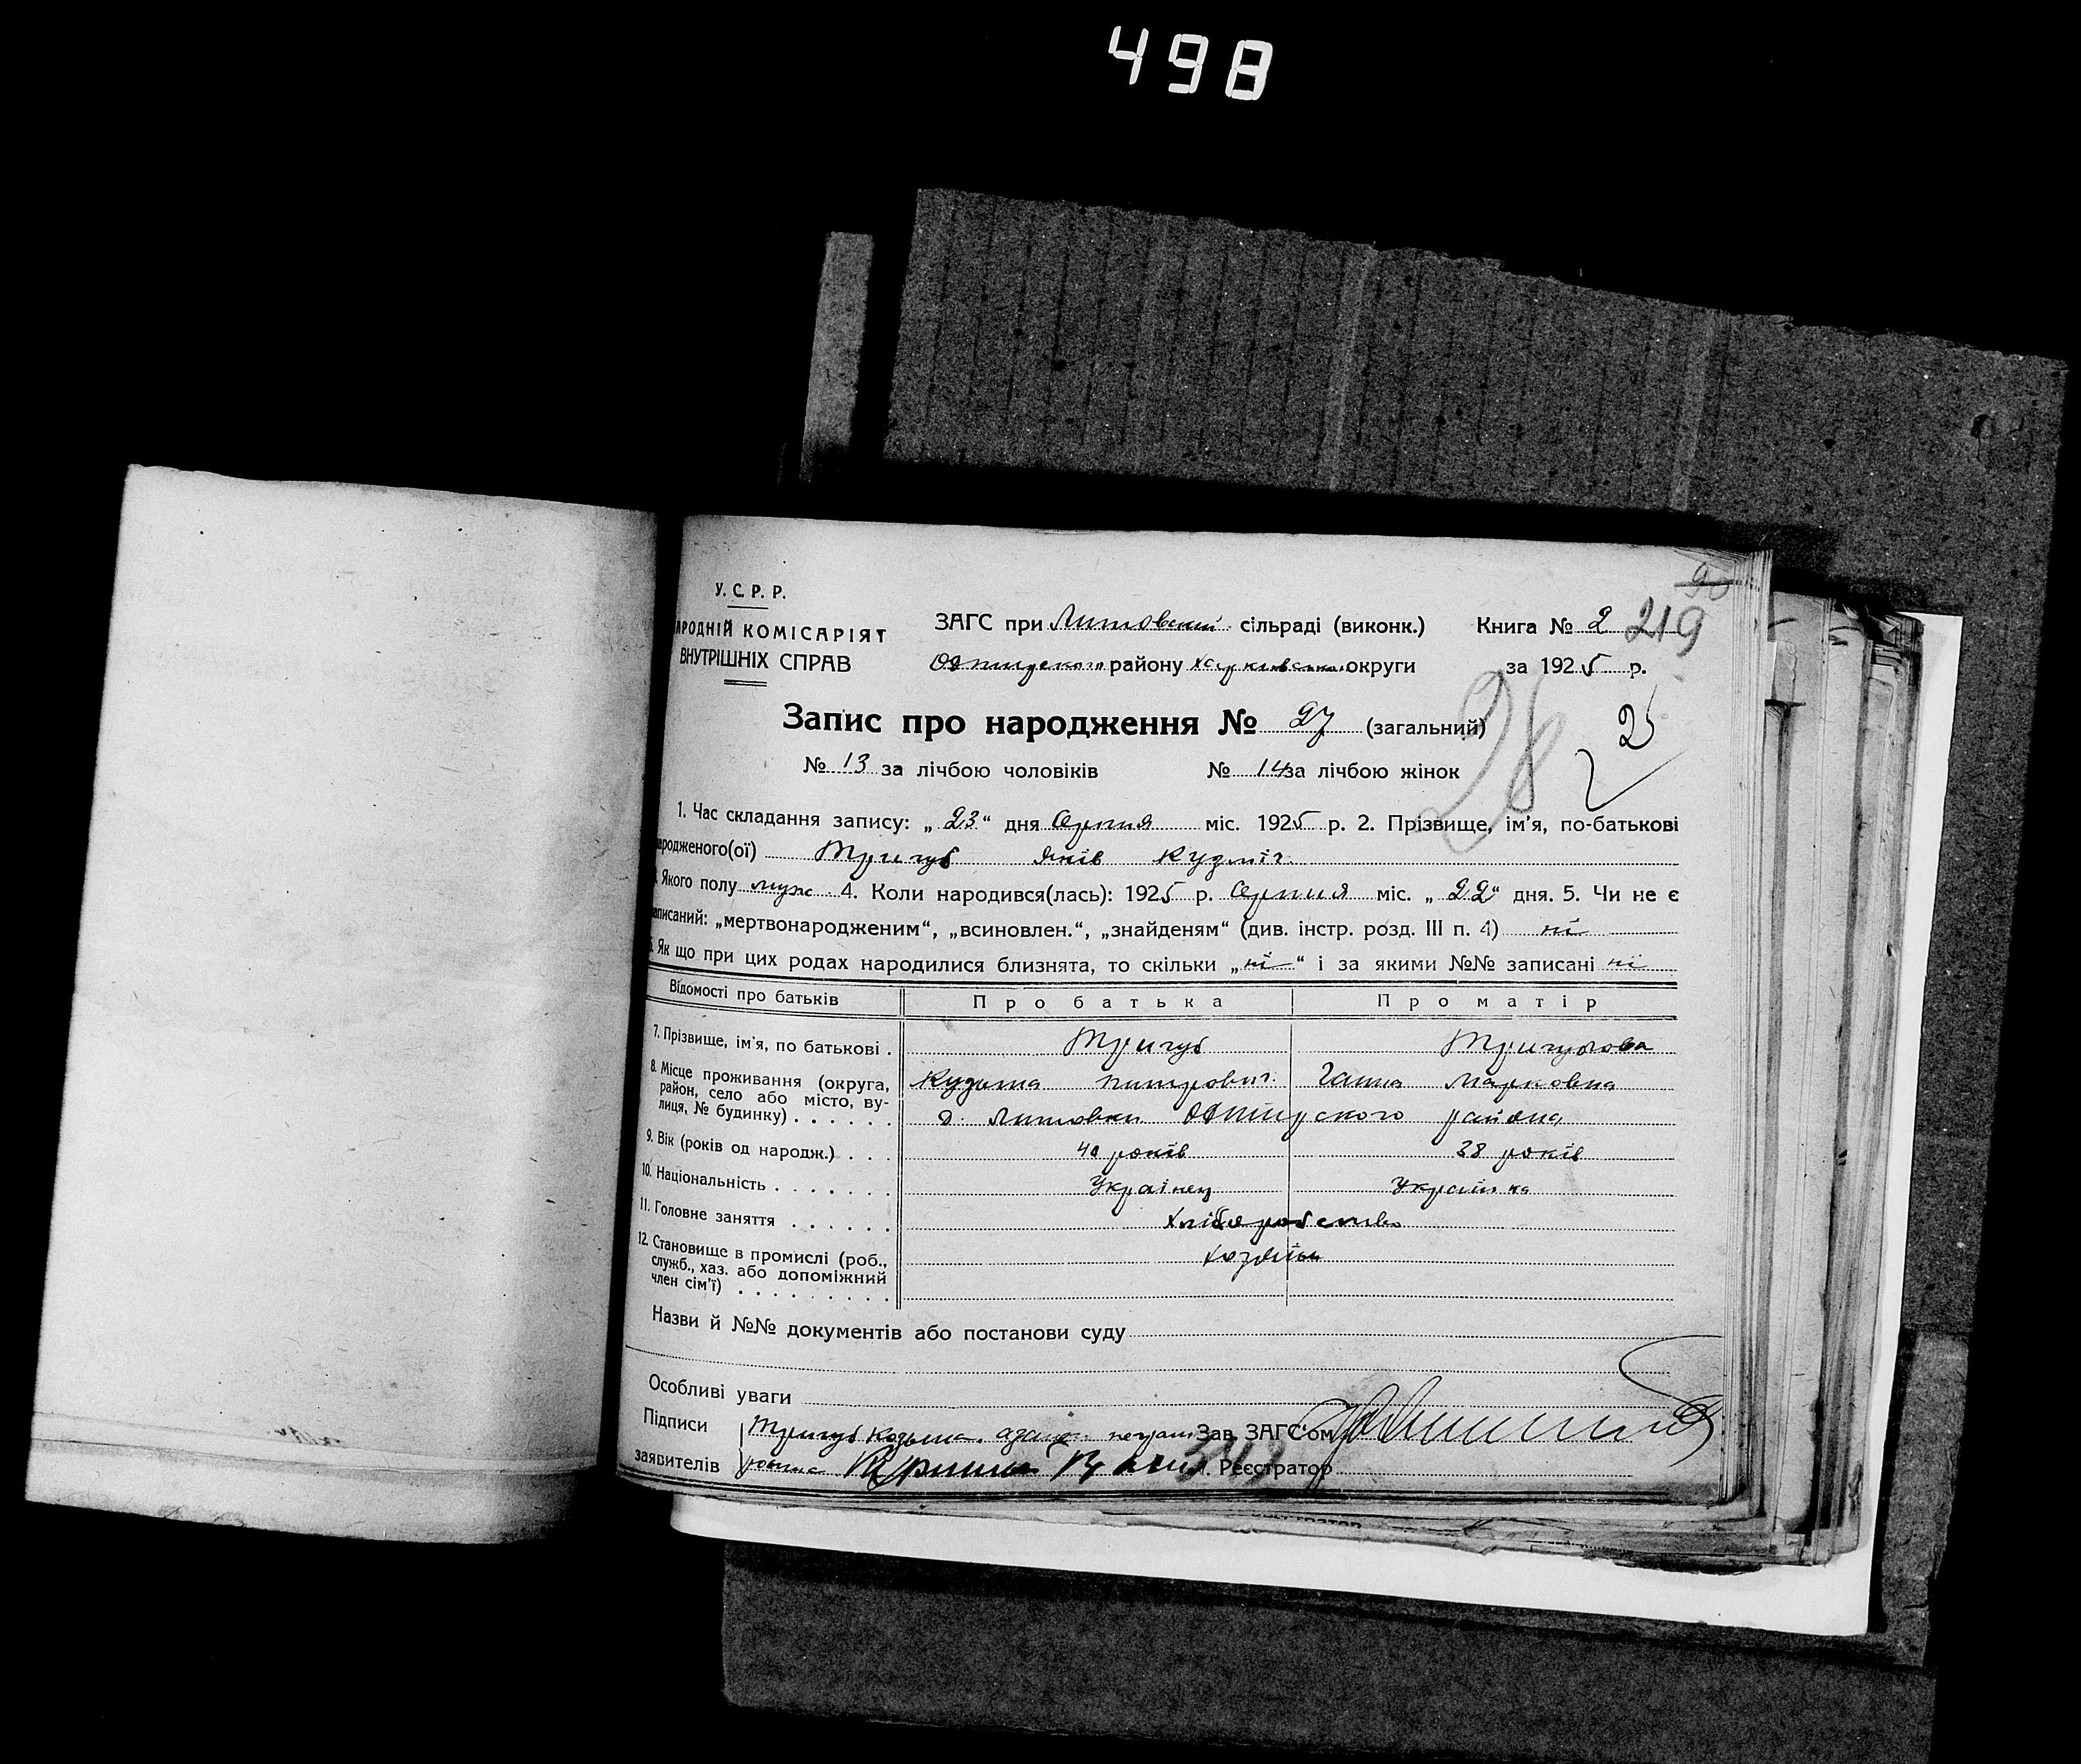 498
90
У. С. Р. Р.
АРОДНІЙ КОМІСАРІЯТ
ВНУТРІШНІХ СПРАВ
ЗАГС при Литовский сільраді (виконк.) Книга № 2 219
району Харківської округи за 1925 р.
Запис про народження № 27 (загальний) 28 25
№ 13 за лічбою чоловіків № 14 за лічбою жінок
1. Час складання запису: „ 23 “ дня Серпня міс. 1925 р. 2. Прізвище, ім’я, по-батькові
ародженого(ої) Тригуб Яків Кузміч
Якого полу муж 4. Коли народився(лась): 1925 р. Серпня міс. „ 22 “ дня. 5. Чи не є
аписаний: „мертвонародженим“, „всиновлен.“, „знайденям“ (див. інстр. розд. III п. 4) ні
Як що при цих родах народилися близнята, то скільки „ ні “ і за якими №№ записані ні
Відомості про батьків Про батька Про матір
7. Прізвище, ім’я, по батькові . Тригуб Тригубова
8. Місце проживання (округа, район, село або місто, вулиця, № будинку) . . . . . . Кузьма Питрович Ганна Марковна
д. Литовки района
9. Вік (років од народж.) . . . 40 років 38 років
10. Національність . . . . . . . Українец Українка
11. Головне заняття . . . . . . Хліборобство
12. Становище в промислі (роб., служб., хаз. або допоміжний член сім’ї) . . . . . . . . . хозяїн
Назви й №№ документів або постанови суду
Особливі уваги
Підписи Тригуб Козьма Зав. ЗАГС’ом
заявителів Реєстратор